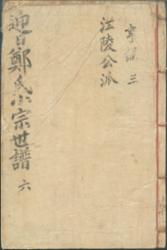 亨編 三
江陵公派
迎日鄭氏小宗世譜 六